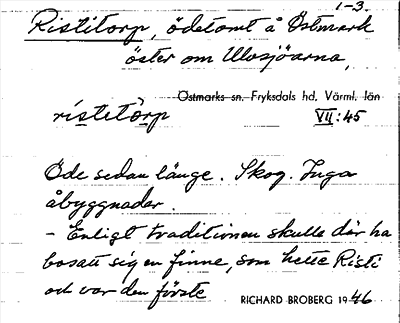 1-3.
Ristitorp, ödetomt å Östmark
öster om Ulvsjöarna,
Östmarks sn, Fryksdals hd, Värml. län
ristetòrp VII:45
Öde sedan länge. Skog. Inga
åbyggnader.
- Enligt traditionen skulle där ha
bosatt sig en finne, som hette Risti
och var den förste
RICHARD BROBERG 1946